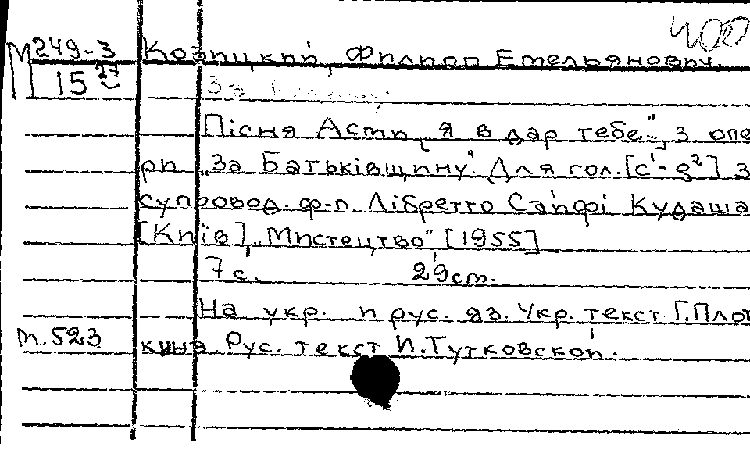 400
М 249-3 Козицкий, Филипп Емельянович.
15 27
За
Пісня Асти „Я в дар тебе", з опе
ри „За Батьківщину". Для гол. [c¹-g²] з
супровод. ф-п. Лібретто Сайфі Кудаша
[Київ], „Мистецтво" [1955]
7 с. 29 см.
На укр. и рус. яз. Укр. текст Г. Плот
п. 523 кина Рус. текст И. Тутковской.